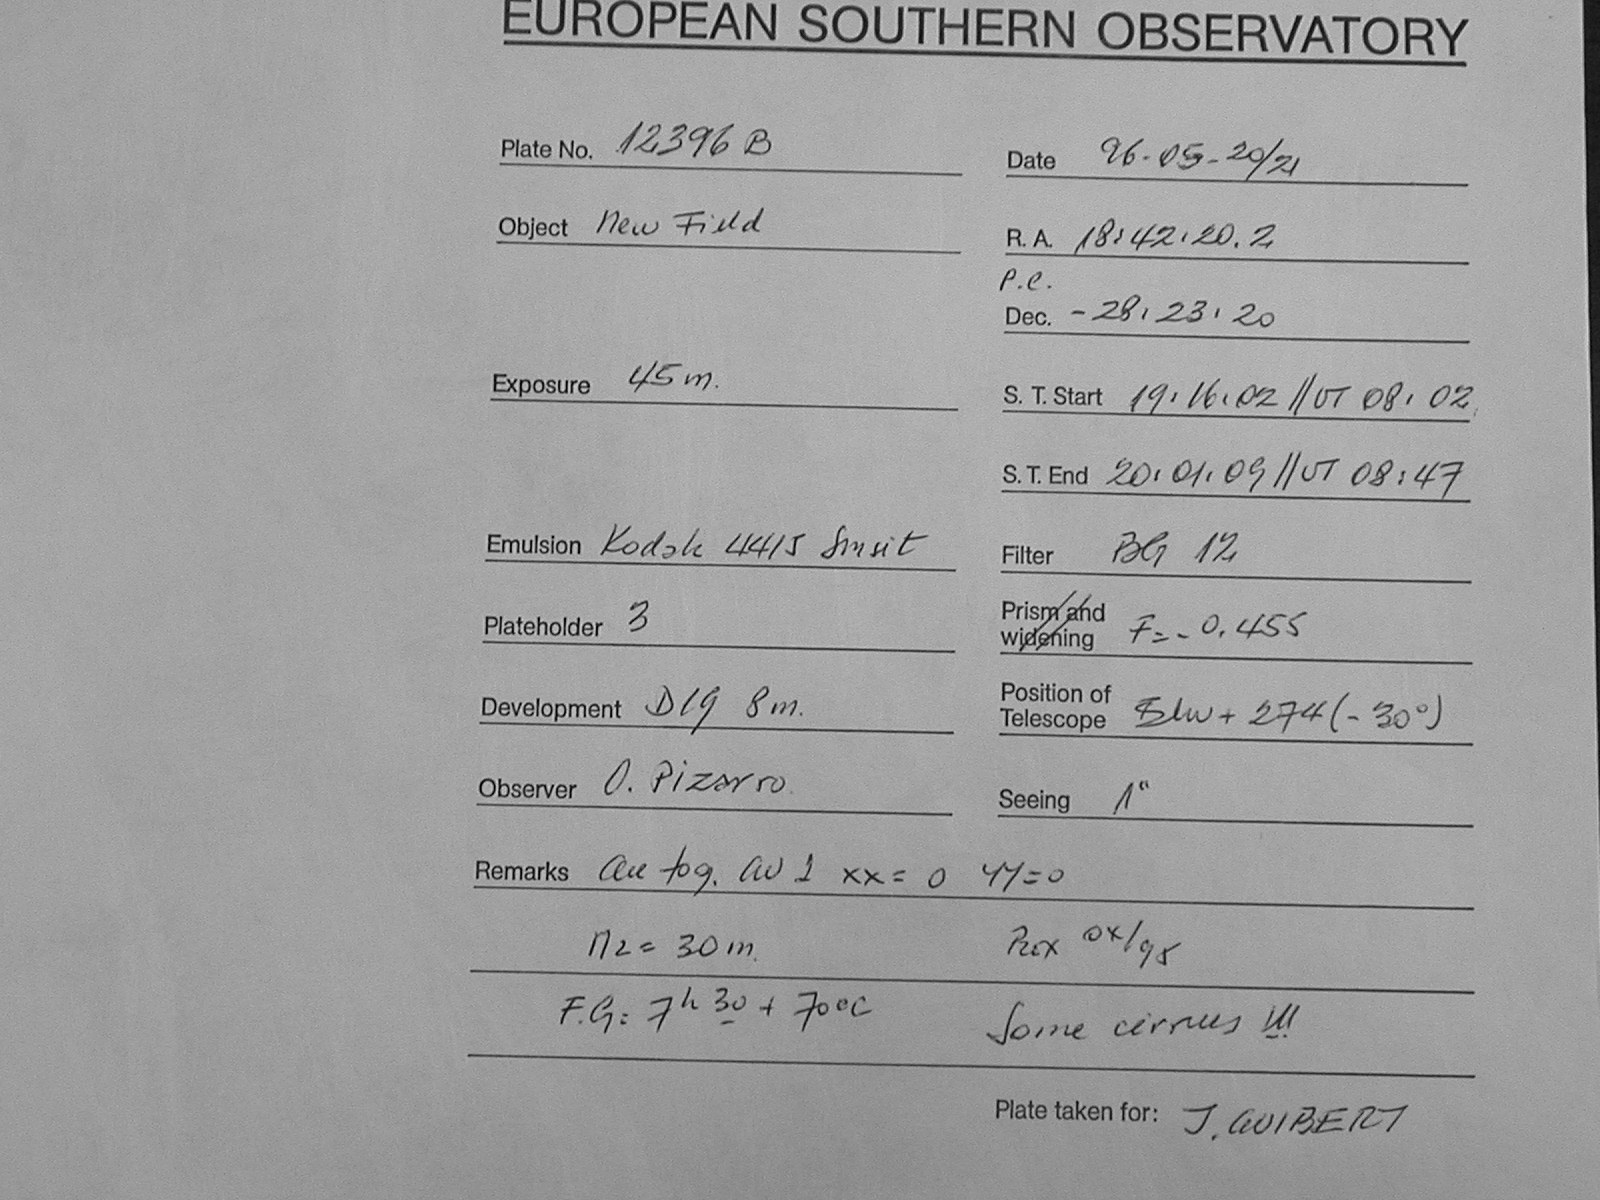 EUROPEAN SOUTHERN OBSERVATORY
Plate No. 12396 B
Date 96-05-20/21
Object New Field
R. A. 18:42:20.2
P.C.
Dec. -28:23:20
Exposure 45 m.
S. T. Start 19:16:02 // UT 08:02
S. T. End 20:01:09 // UT 08:47
Emulsion Kodak 4415
Filter BG 12
Plateholder 3
Prism and widening F=-0.455
Development D19 8 m.
Position of Telescope + 274 (-30°)
Observer O. Pizarro
Seeing 1"
Remarks xx = 0 YY = 0
= 30 m.
F.G: 7h 30 + 70°C
Some cirrus !!!
Plate taken for: J. GUIBERT